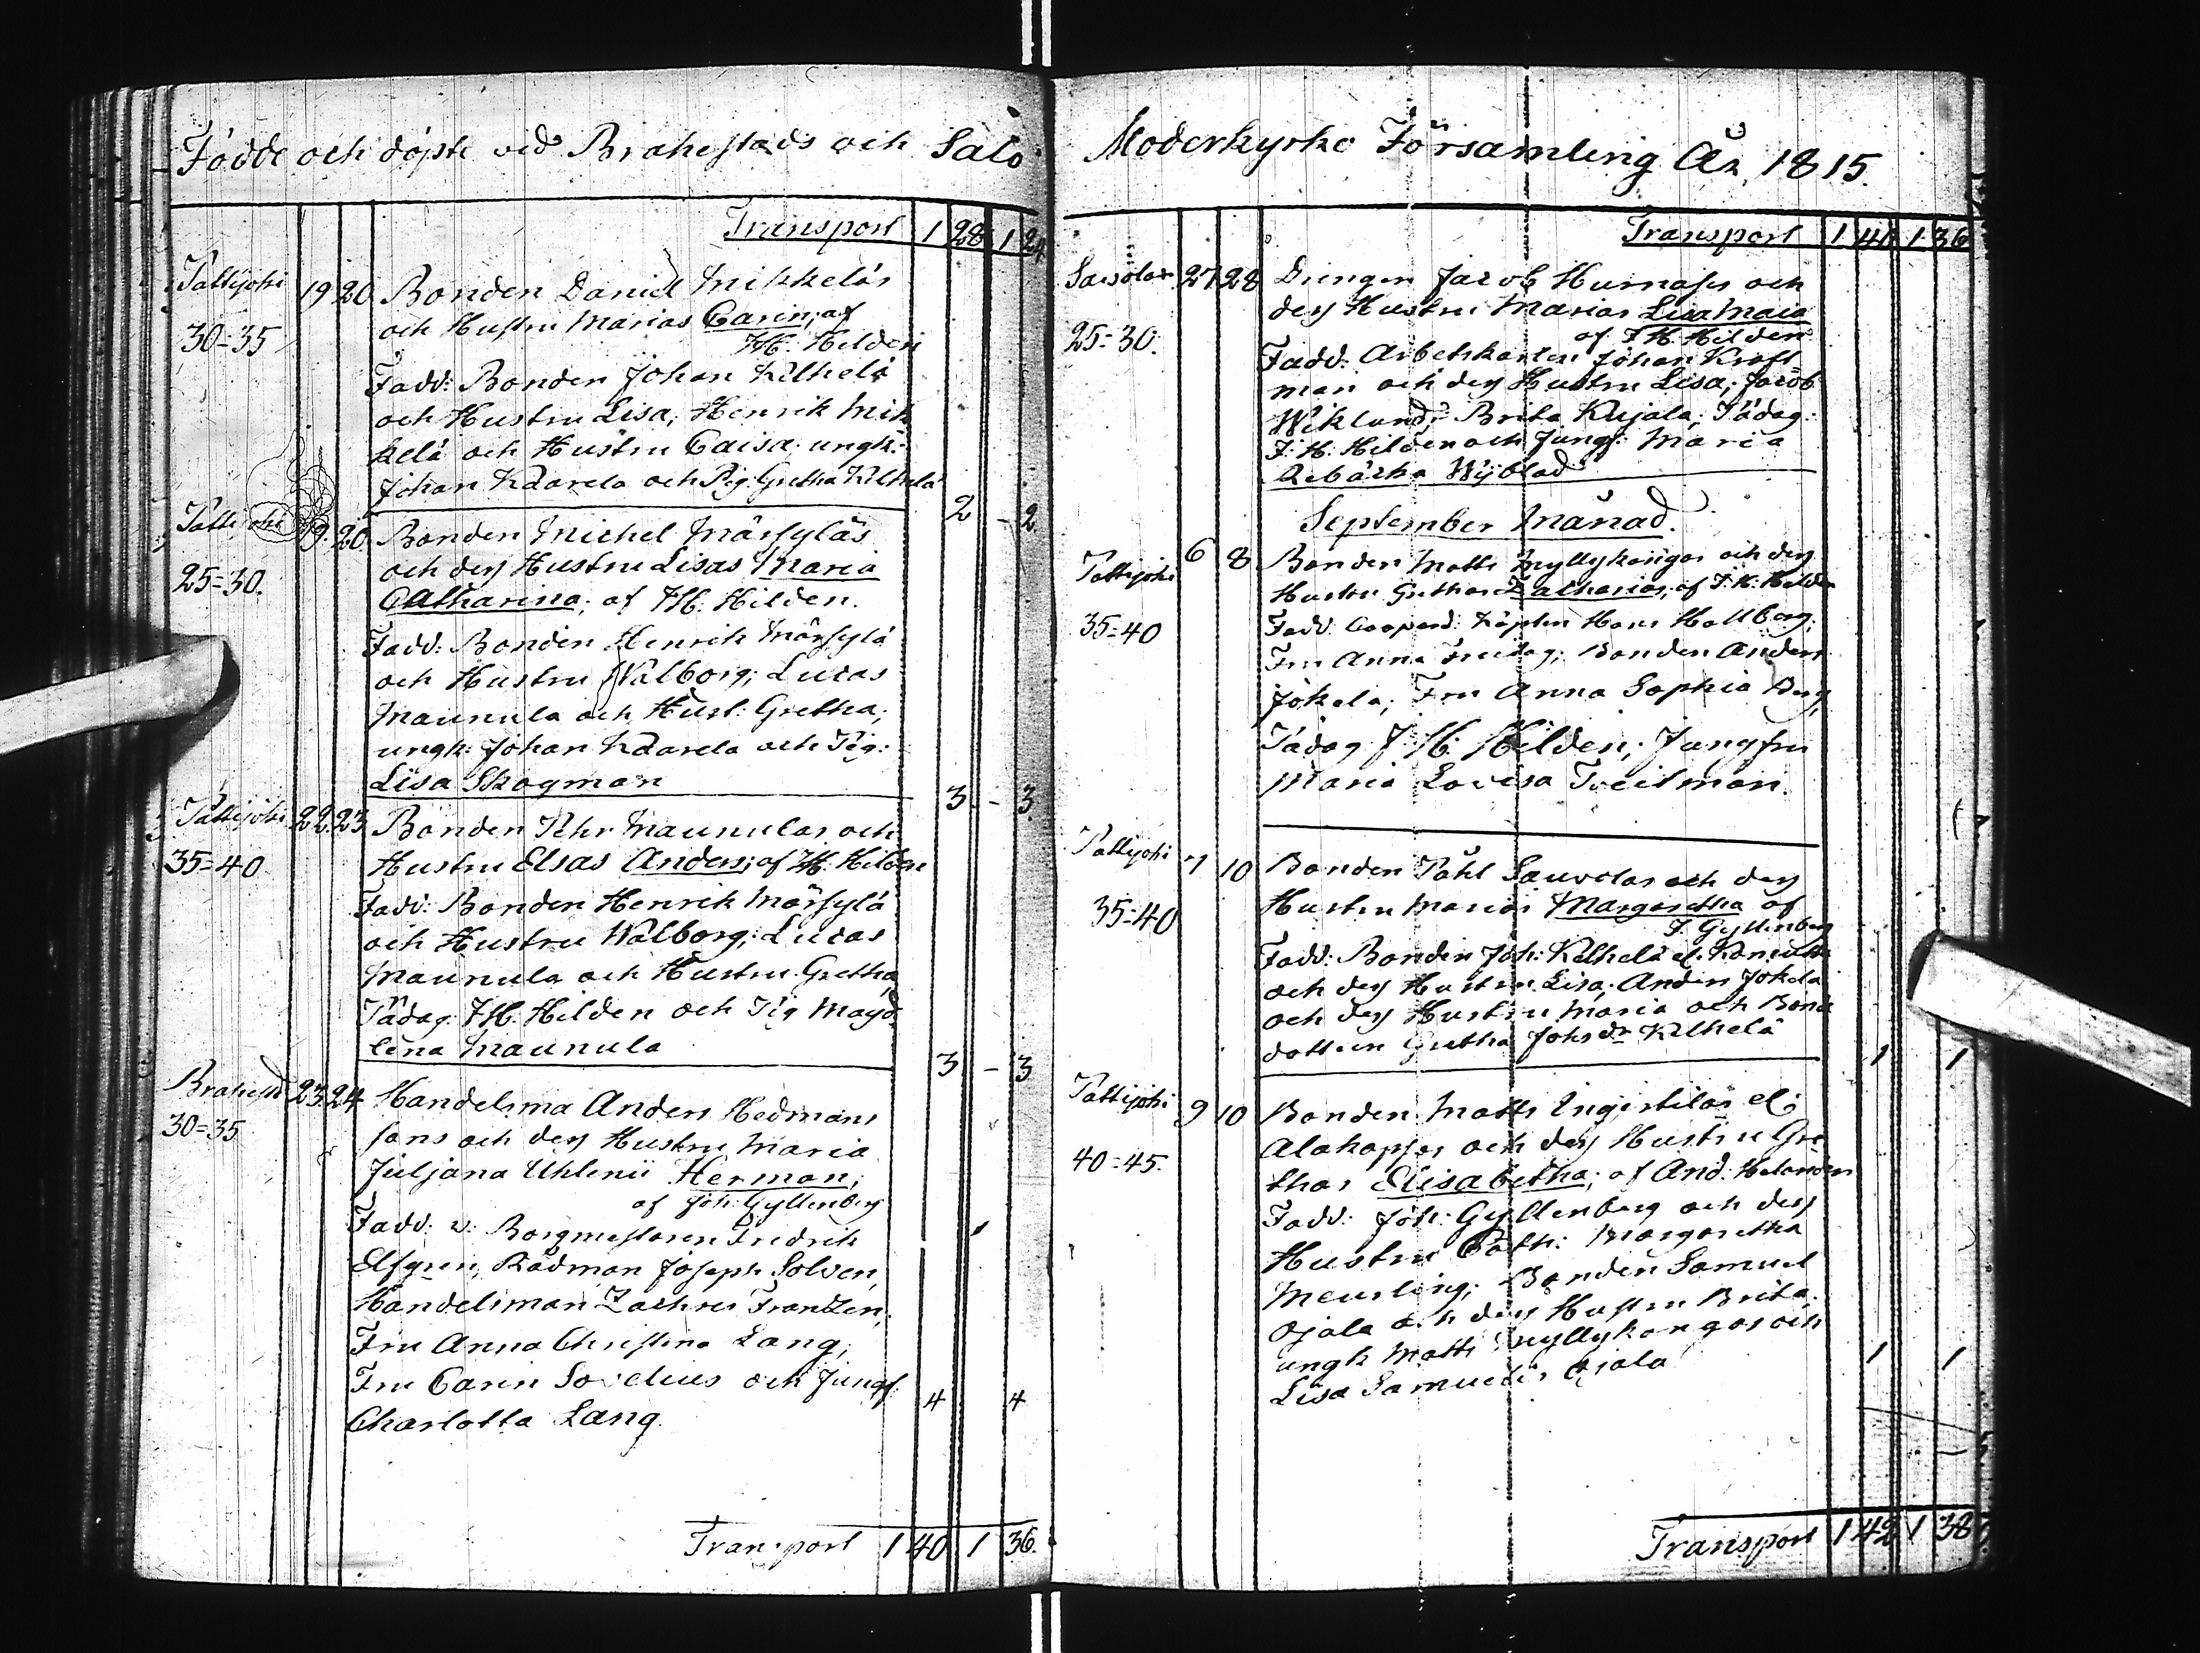 Födde och döpte vid Brahestads och Salo
Transport 1 28 1 24
Pattijoki 19 20 Bonden Daniel Mikkeläs
och Hustru Marias Carin; af
30=35 J.H. Hilden
Fadd: Bonden Johan Kelhelä
och Hustru Lisa; Henrik Mik
kelä och Hustru Caisa; ungk:
Johan Kaarela och Pig: Gretha Kelhelä 2 - 2
Pattijoki 19. 20. Bonden Michel Märsyläs
och dess Hustru Lisas Maria
25=30. Catharina; af J.H. Hilden.
Fadd: Bonden Henrik Märsylä
och Hustru Walborg; Lucas
Maunula och Hust: Gretha;
ungk: Johan Kaarela och Pig:
Lisa Skogman 3 - 3
Pattijoki 22. 23. Bonden Pehr Maunulas och
35=40 Hustru Elsas Anders; af J.H. Hilden
Fadd: Bonden Henrik Märsylä
och Hustru Walborg; Lucas
Maunula och Hustru Gretha,
Pädag. J.H. Hilden och Pig Magd
lena Maunula 3 - 3
Brahestd 23. 24. Handelsma Anders Hedmans
30=35 sons och dess Hustru Maria
Juljana Uhlenii Herman;
af Joh: Gyllenberg
Fadd: v. Borgmestaren Fredrik
Elfgren, Rådman Joseph Solven,
Handelsman Zachris Frantzén,
Fru Anna Christina Lang;
Fru Carin Sovelius och Jungf:
Charlotta Lang. 4 4
Transport 1 40 1 36.
Moderkyrko Församling År 1815.
Transport 1 40 1 36
27 28 Drengen Jacob Hurnasis och
dess Hustru Marias Lisa Maia
25=30. af J.H. Hilden
Fadd: Arbetskarlen Johan Kroft
man och dess Hustru Lisa; Jacob
Wiklund; Brita Kujala; Pädag:
J.H. Hilden och Jungf: Maria
Rebäcka Wijblad
September Månad.
Pattijoki 6 8 Bonden Matts Myllykangas och dess
Hustru Grethas Zacharias; af J.H. Hilden
35=40 Fadd: Kapten Hans Hallberg;
Fru Anna Freitag; Bonden Anders
Jokela; Fru Anna Sophia Berg,
Pädag J.H. Hilden; Jungfru
Maria Lovisa Treitman.
Pattijoki 7 10 Bonden Påhl Sauvolas och dess
35=40 Hustru Marias Margaretha af
J. Gyllenberg
Fadd: Bonden Joh: Kelhelä el.
och dess Hustru Lisa; Anders Jokela
och dess Hustru Maria och Bond
dottren Gretha Johs dr Kelhelä 1 1
Pattijoki 9 10 Bonden Matts Ingertiläs el:
Alahapsas och dess Hustru Gre
40=45. thas Elisabetha; af And: Helander
Fadd: Joh: Gyllenberg och dess
Hustru Cath: Margaretha
Meurling; Bonden Samuel
Ojala och dess Hustru Brita;
ungk Matts Myllykangas och
Lisa Samuels Ojala 1 1
Transport 1 42 1 38